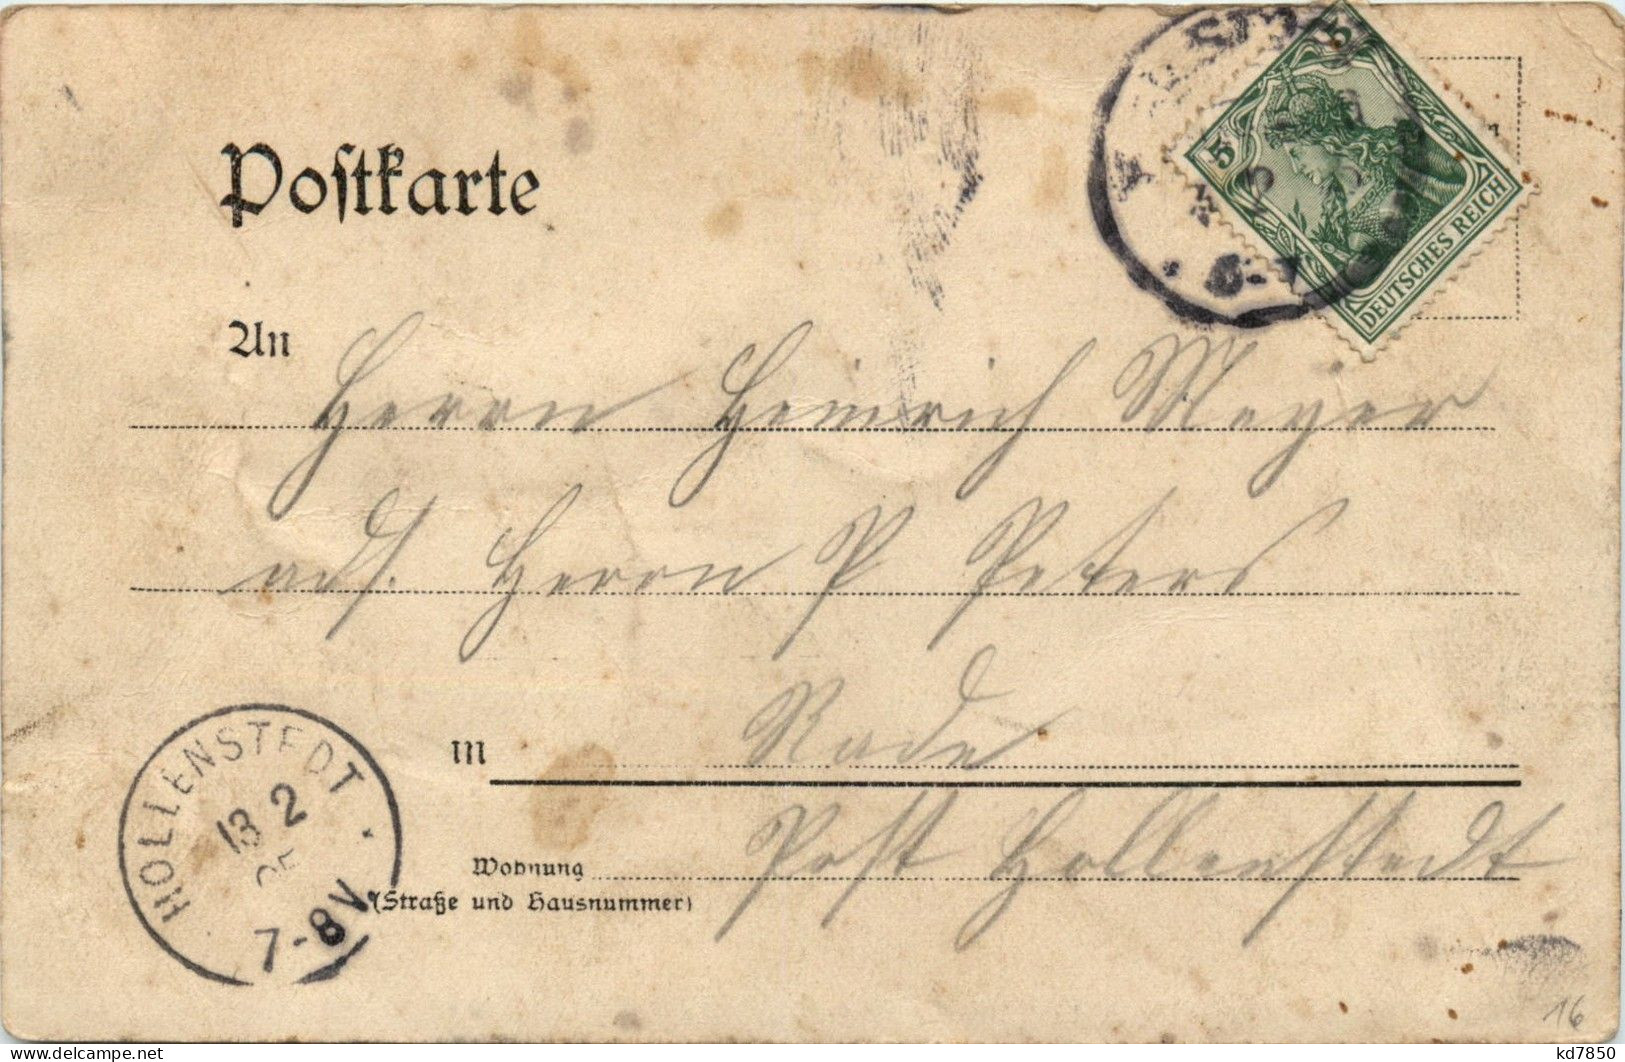 Postkarte
5
5
DEUTSCHES REICH
An
Herrn Heinrich Meyer
Herrn P Peters
in
Rade
HOLLENSTEDT
13 2
05
7-8V
Wohnung
Post Hollenstedt
(Straße und Hausnummer)
16
kd7850